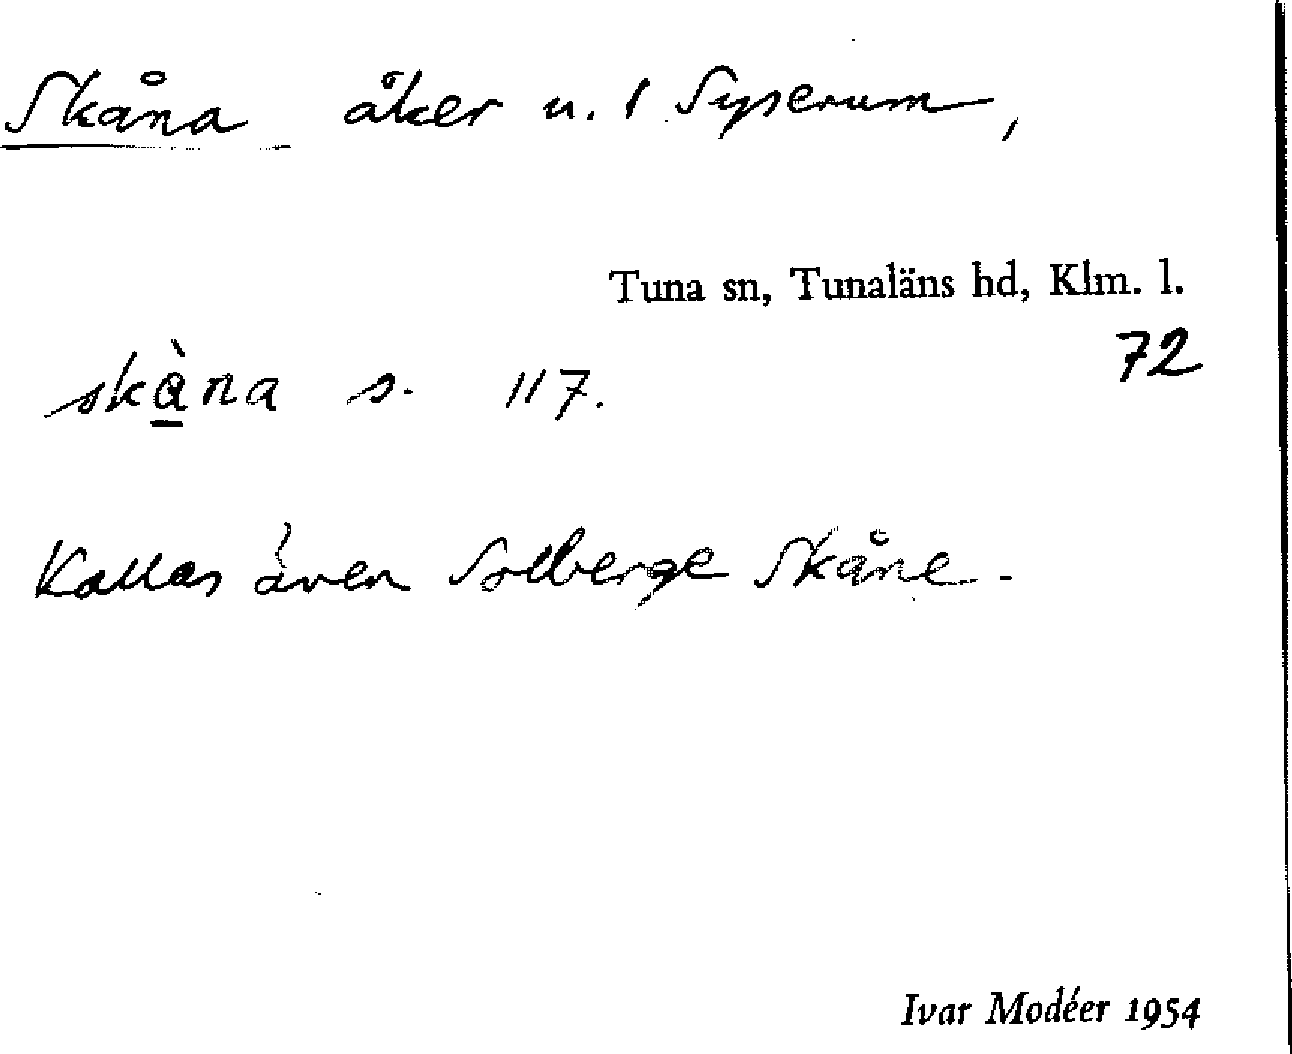 Skåna åker u. 1 Syserum,
Tuna sn, Tunaläns hd, Klm. l.
72
skàna s. 117.
Kallas även Solberge Skåne.
Ivar Modéer 1954